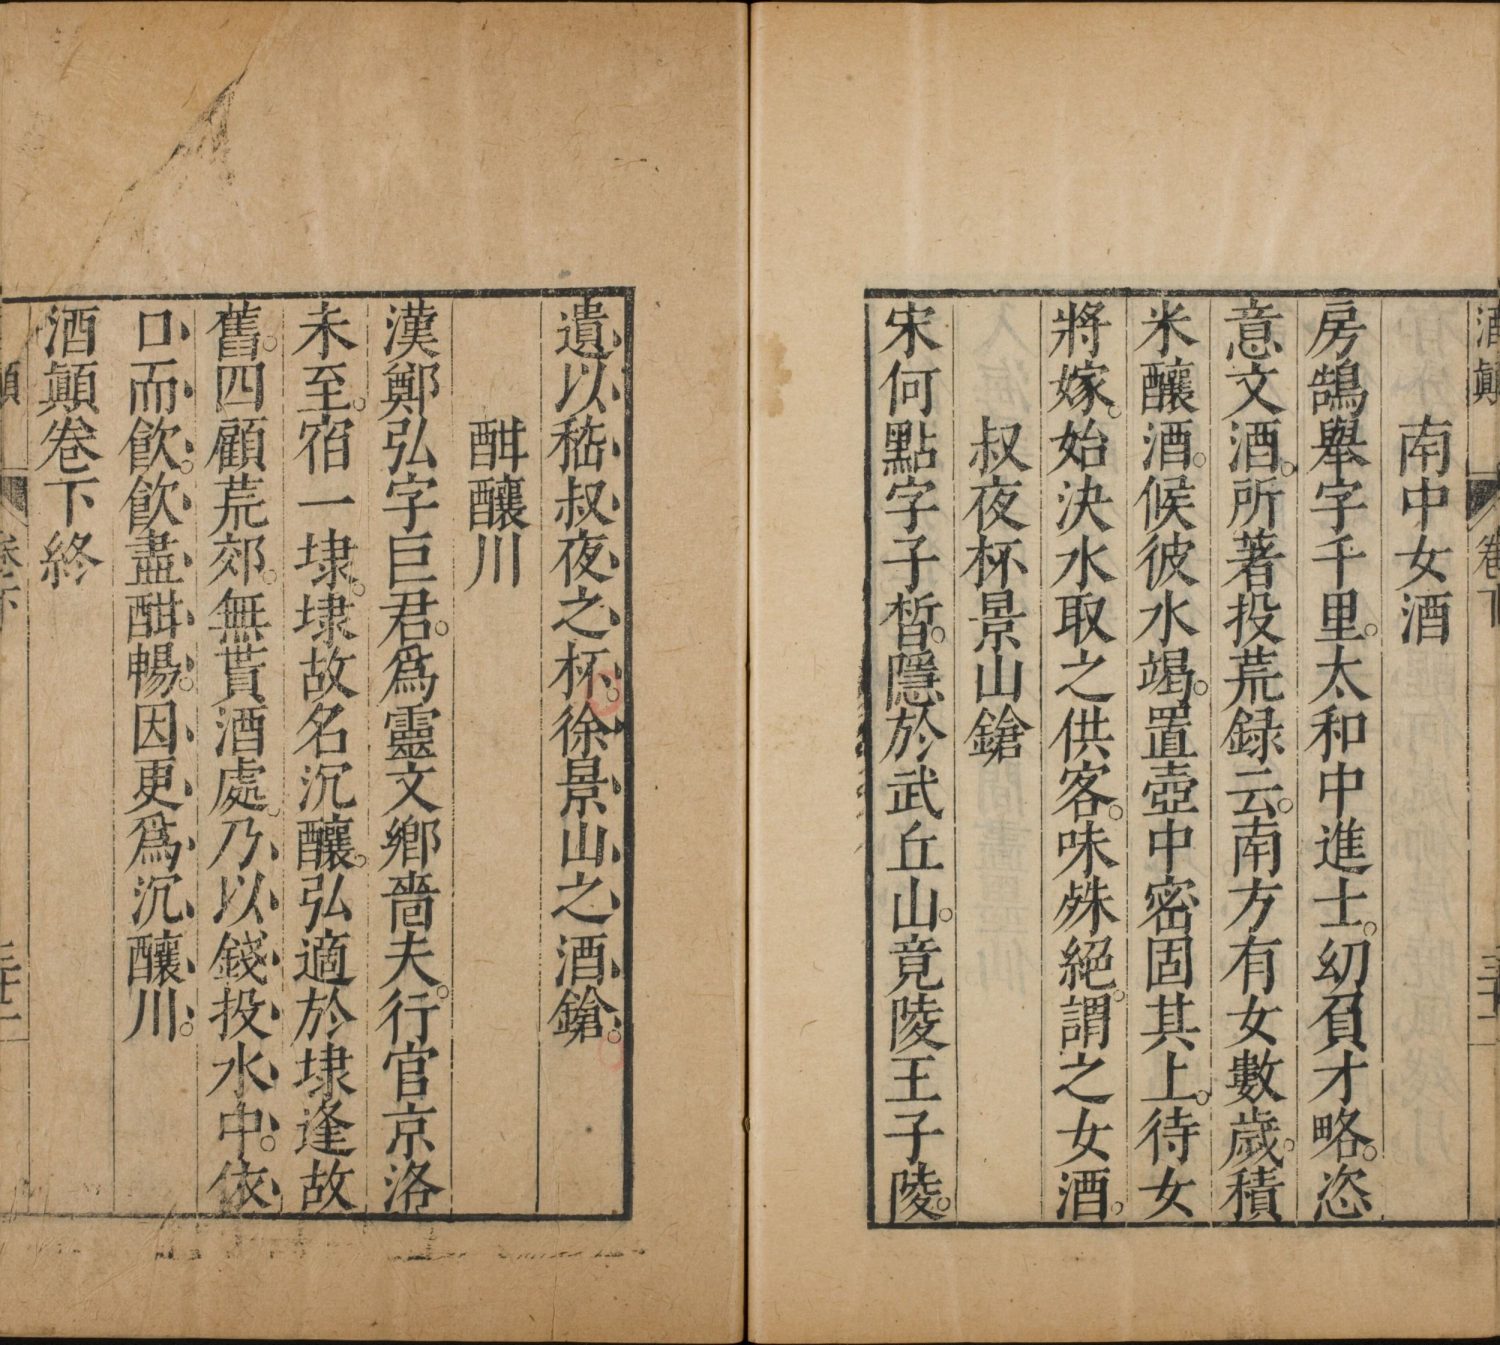 酒顛 卷下 三十二
南中女酒
房鵠舉字千里。太和中進士。幼負才略。恣
意文酒。所著投荒録云。南方有女數歲。積
米釀酒。候彼水竭。置壺中密固其上。待女
將嫁。始決水取之供客。味殊絕。謂之女酒。
叔夜杯景山鎗
宋何點字子晳。隱於武丘山。竟陵王子陵。
遺以嵇叔夜之杯。徐景山之酒鎗。
酣釀川
漢鄭弘字巨君。爲靈文鄉嗇夫。行官京洛
未至。宿一埭。埭故名沉釀。弘適於埭逢故
舊。四顧荒郊。無貰酒處。乃以錢投水中。依
口而飲。飲盡酣暢。因更爲沉釀川。
酒顛卷下終